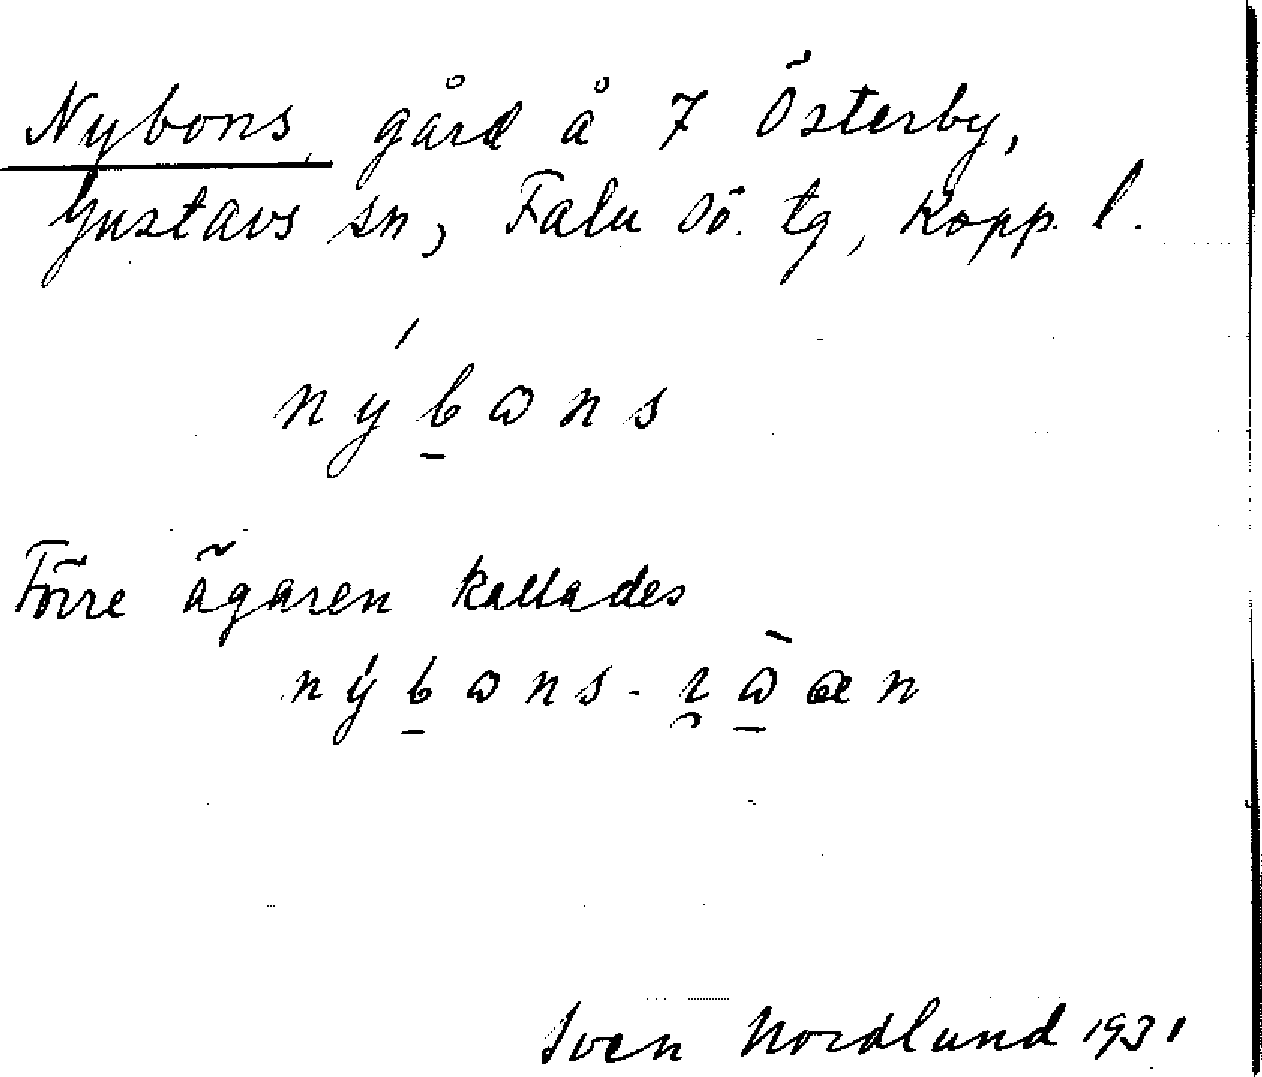 Nybons, gård å 7 Österby,
Gustavs sn, Falu Sö. tg, Kopp. l.
nýbωns
Förre ägaren kallades
nýbωns-rὼæn
Sven Nordlund 1931